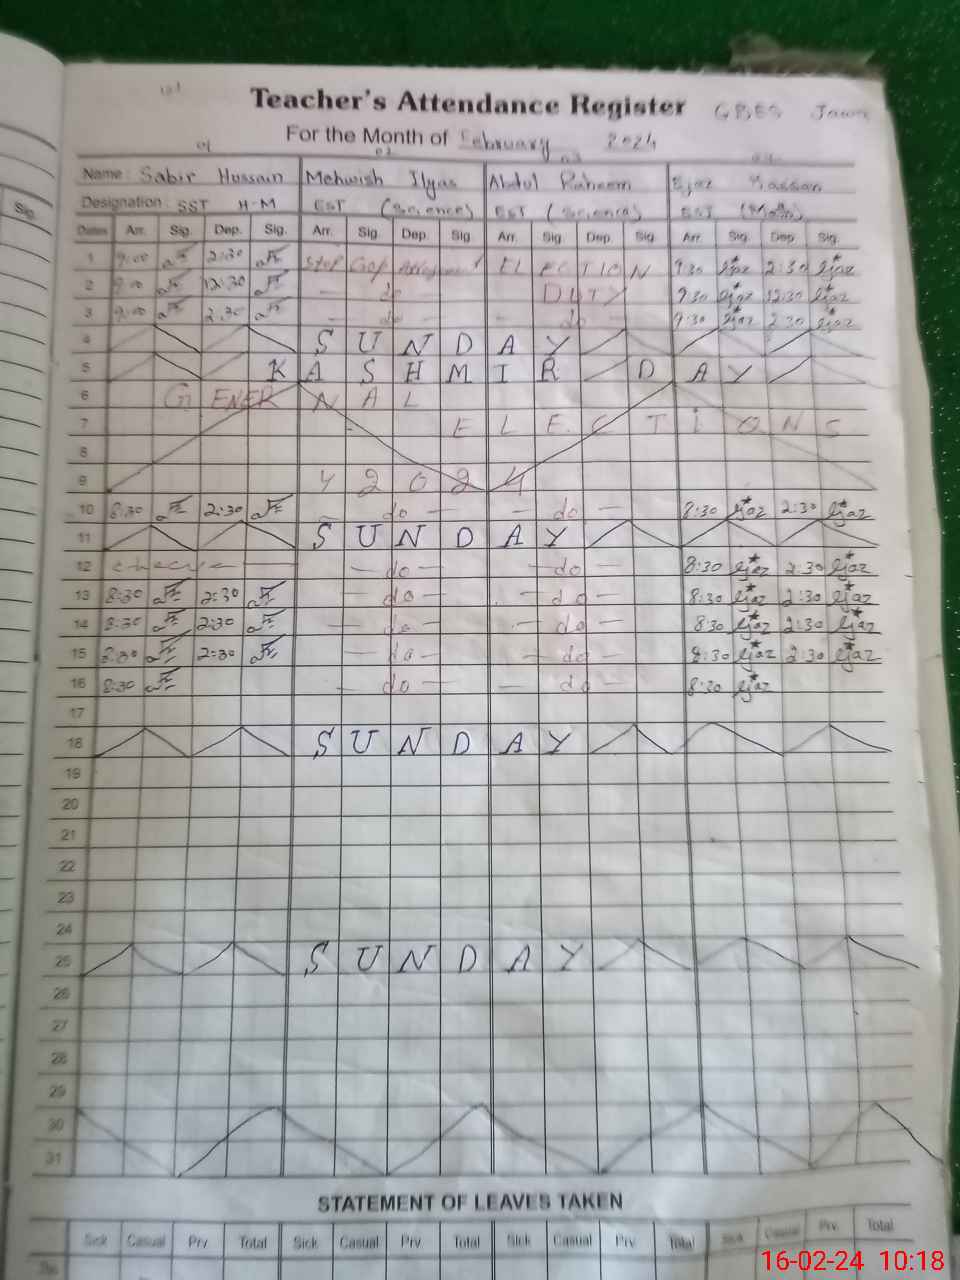 Teacher's Attendance Register GBES
For the Month of February 2024
01 02 03 04
Name: Sabir Hussain Mehwish Ilyas Abdul Raheem Ejaz Hassan
Designation: SST H-M EST (Science) EST (Science) EST (Math)
Dates Arr. Sig. Dep. Sig. Arr. Sig. Dep. Sig. Arr. Sig. Dep. Sig. Arr. Sig. Dep. Sig.
1 9:00 2:30 Stop Gap ELECTION 9:30 Ejaz 2:30 Ejaz
2 9:00 12:30 — do — DUTY 9:30 Ejaz 12:30 Ejaz
3 9:00 2:30 — do — — do — 9:30 Ejaz 2:30 Ejaz
4 SUNDAY
5 KASHMIR DAY
6 GENERNAL
7 ELECTIONS
8
9 2024
10 8:30 2:30 — do — — do — 8:30 Ejaz 2:30 Ejaz
11 SUNDAY
12 — do — — do — 8:30 Ejaz 2:30 Ejaz
13 8:30 2:30 — do — — do — 8:30 Ejaz 2:30 Ejaz
14 8:30 2:30 — do — — do — 8:30 Ejaz 2:30 Ejaz
15 8:30 2:30 — do — — do — 8:30 Ejaz 2:30 Ejaz
16 8:30 — do — — do — 8:30 Ejaz
17
18 SUNDAY
19
20
21
22
23
24
25 SUNDAY
26
27
28
29
30
31
STATEMENT OF LEAVES TAKEN
Sick Casual Prv. Total Sick Casual Prv. Total Sick Casual Prv. Total Sick Casual Prv. Total
Sig.
16-02-24 10:18